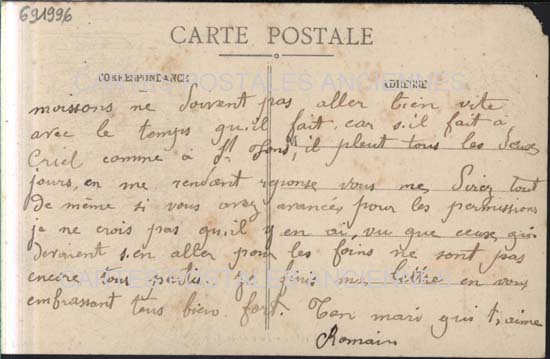 691996
CARTE POSTALE
CORRESPONDANCE
ADRESSE
CARTES POSTALES ANCIENNES
moissons ne doivent pas aller bien vite
avec le temps qu'il fait, car s'il fait à
Criel comme à St Fons, il pleut tous les deux
jours, en me rendant réponse vous me direz tout
de même si vous avez avancés pour les permissions
je ne crois pas qu'il y en ai, vu que ceux qui
devraient s'en aller pour les foins ne sont pas
encore tous partis. Je finis ma lettre en vous
embrassant tous bien fort. Ton mari qui t'aime
Romain
CARTES POSTALES ANCIENNES